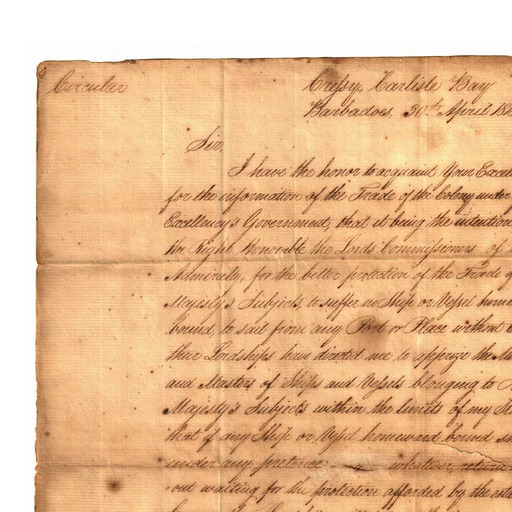 Circular
Cressy, Carlisle Bay
Barbadoes, 30th April 18
Sir,
I have the honor to acquaint Your Excel
for the information of the Trade of the Colony under
Excellency's Government, that it being the intention
the Right Honorable the Lords Commissioners of
Admiralty, for the better protection of the Trade of
Majesty's Subjects, to suffer no Ship or Vessel home
bound, to sail from any Port or Place without
their Lordships have directed me to apprize the
and Masters of Ships and Vessels belonging to
Majesty's Subjects within the limits of my
that if any Ship or Vessel homeward bound
under any pretence whatever, return
out waiting for the protection afforded by the esta